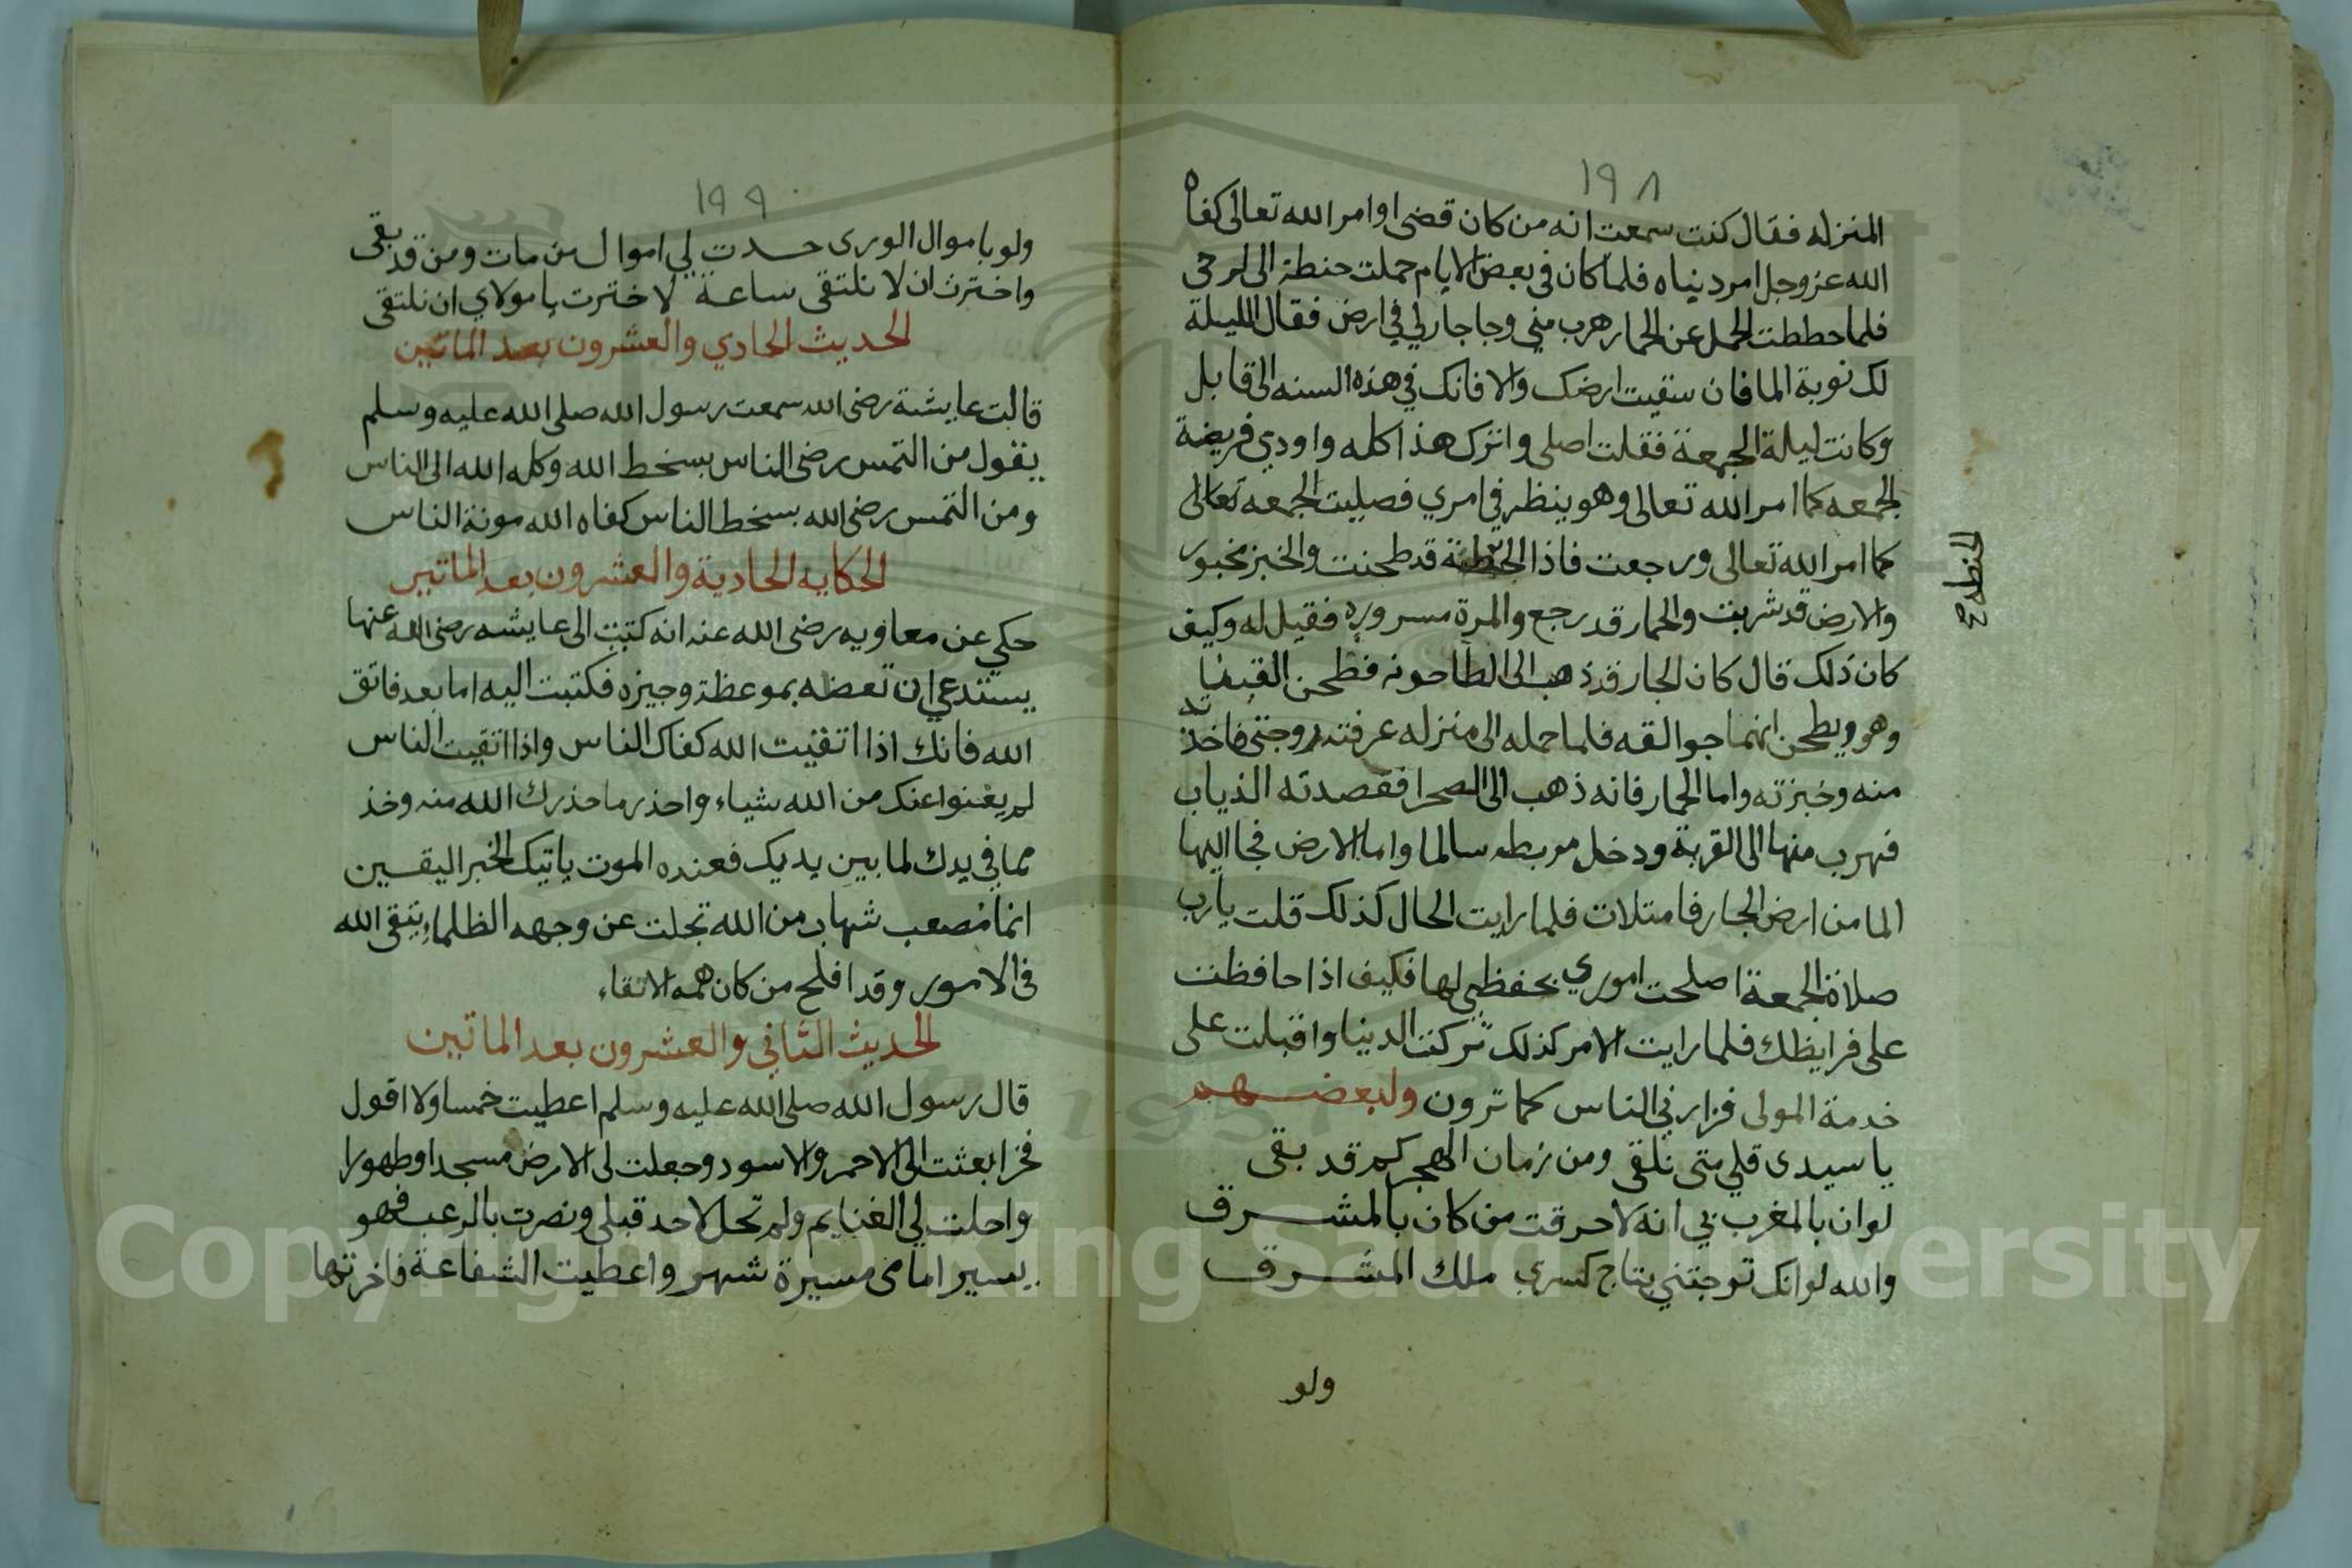 ١٩٨
المنزله فقال كنت سمعت انه من كان قضى اوامر الله تعالى كفاه
الله عز وجل امر دنياه فلما كان في بعض الايام حملت حنطة الى الرحى
فلما حططت الحمل عن الحمار هرب مني وجا جار لي في ارض فقال الليلة
لك نوبة الما فان سقيت ارضك والا فانك في هذه السنه الى قابل
وكانت ليلة الجمعة فقلت اصلى واترك هذا كله واودي فريضة
الجمعه كما امر الله تعالى وهو ينظر في امري فصليت الجمعه تعالى
كما امر الله تعالى ورجعت فاذا الحنطة قد طحنت والخبز مخبوز
الحنطه ح
والارض قد شربت والحمار قد رجع والمرة مسروره فقيل له وكيف
كان ذلك قال كان الجار قد ذهب الى الطاحونه فطحن
وهو ويطحن انهما جوالقه فلما حمله الى منزله عرفته زوجتى فاخذته
منه وخبزته واما الحمار فانه ذهب الى الصحرا فقصدته الذياب
فهرب منها الى القرية ودخل مربطه سالما واما الارض فجا اليها
الما من ارض الجار فامتلات فلما رايت الحال كذلك قلت يارب
صلاة الجمعة اصلحت اموري بحفظي لها فكيف اذا حافظت
على فرايظك فلما رايت الامر كذلك تركت الدنيا واقبلت على
خدمة المولى فزارني الناس كما ترون ولبعضهم
يا سيدى قلي متى نلتقى ومن زمان الهجر كم قد بقى
لوان بالمغرب بي انه لاحرقت من كان بالمشرق
والله لوانك توجتني بتاج كسرى ملك المشرق
ولو
١٩٩
ولو باموال الورى جدت لي اموال من مات ومن قد بقى
واخترت ان لا نلتقى ساعة لاخترت يا مولاي ان نلتقى
الحديث الحادي والعشرون بعد الماتين
قالت عايشة رضى الله سمعت رسول الله صلى الله عليه وسلم
يقول من التمس رضى الناس بسخط الله وكله الله الى الناس
ومن التمس رضى الله بسخط الناس كفاه الله مونة الناس
الحكايه الحادية والعشرون بعد الماتين
حكي عن معاويه رضى الله عنه انه كتب الى عايشه رضى الله عنها
يستدعي ان تعضه بموعظة وجيزه فكتبت اليه اما بعد فاتق
الله فانك اذا اتقيت الله كفاك الناس واذا اتقيت الناس
لم يغنوا عنك من الله شياء واحذر ما حذرك الله منه وخذ
مما في يدك لما بين يديك فعنده الموت ياتيك الخبر اليقين
انما مصعب شهاب من الله تجلت عن وجهه الظلماء يتقى الله
في الامور وقد افلح من كان همه الاتقاء
الحديث الثاني والعشرون بعد الماتين
قال رسول الله صلى الله عليه وسلم اعطيت خمسا ولا اقول
فخرا بعثت الى الاحمر والاسود وجعلت لى الارض مسجدا وطهورا
واحلت لي الغنايم ولم تحل لاحد قبلى ونصرت بالرعب فهو
يسير امامى مسيرة شهر واعطيت الشفاعة فاخرتها
Copyright © King Saud University
1957